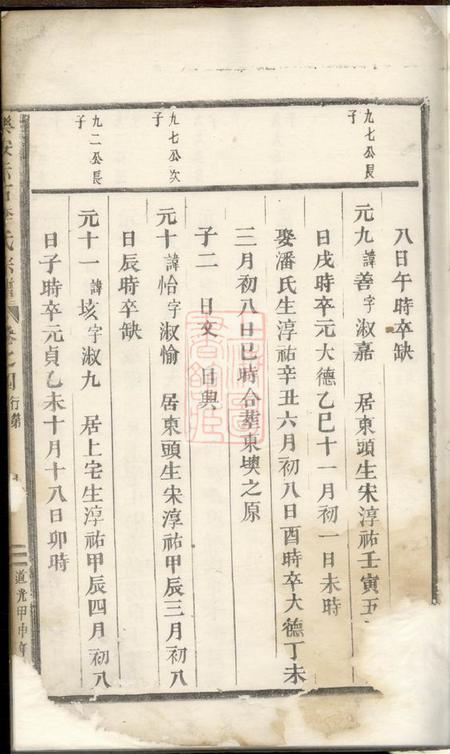 八日午時卒缺
九七公長子
元九諱善字淑嘉 居東頭生宋淳祐壬寅五
日戌時卒元大德乙巳十一月初一日未時
娶潘氏生淳祐辛丑六月初八日酉時卒大德丁未
三月初八日巳時合葬東墺之原
子二 日文 日典
九七公次子
元十諱怡字淑愉 居東頭生宋淳祐甲辰三月初八
日辰時卒缺
九二公長子
元十一諱垓字淑九 居上宅生淳祐甲辰四月初八
日子時卒元貞乙未十月十八日卯時
氏宗譜 卷之四 行第
道光甲申